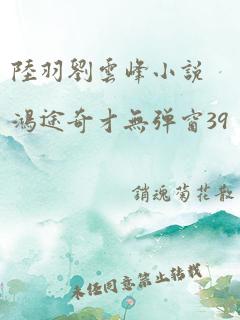 陸羽劉雲峰小説
鴻途奇才無弹窗39
銷魂菊花散
未经同意禁止转载